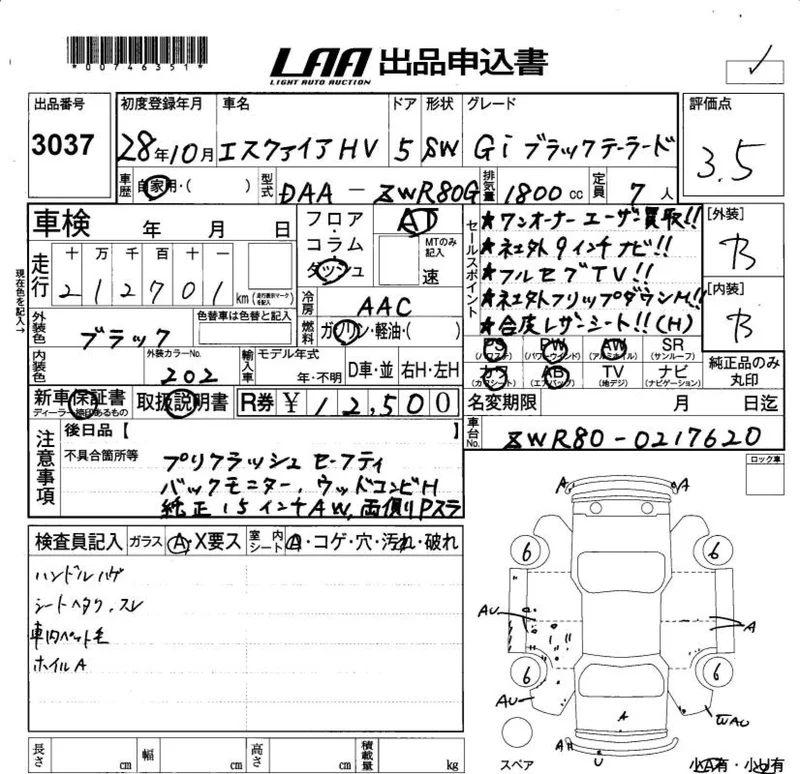 *00746351*
LAA 出品申込書
LIGHT AUTO AUCTION
✓
出品番号
3037
初度登録年月 車名 ドア 形状 グレード
28年10月 エスクァイアHV 5 SW Gi ブラックテーラード
評価点
3.5
車歴 自家用・( ) 型式 DAA-ZWR80G 排気量 1800cc 定員 7人
車検 年 月 日
フロア・コラム・ダッシュ
AT
MTのみ記入
速
セールスポイント
★ワンオーナーユーザー買取!!
★社外9インチナビ!!
★フルセグTV!!
★社外フリップダウンM!!
★合皮レザーシート!!(H)
[外装]
B
[内装]
B
現在色を記入→
走行 十 万 千 百 十 一
212701 km (走行表示マークを記入)
冷房 AAC
燃料 ガソリン・軽油・( )
外装色 ブラック
色替車は色替と記入
内装色
外装カラーNo.
202
輸入車 モデル年式
年・不明
D車・並 右H・左H
PS (パワステ) PW (パワーウインド) AW (アルミホイル) SR (サンルーフ)
カワ (カワシート) AB (エアバッグ) TV (地デジ) ナビ (ナビゲーション)
純正品のみ丸印
新車保証書
ディーラー捺印あるもの
取扱説明書
R券 ¥ 12,500
名変期限 月 日迄
車台No. ZWR80-0217620
注意事項
後日品【 】
不具合箇所等
プリクラッシュセーフティ
バックモニター、ウッドコンビH
純正15インチAW、両側Pスラ
ロック車
検査員記入 ガラス A・X要ス 室内シート A・コゲ・穴・汚れ・破れ
ハンドルハゲ
シートヘタリ.スレ
車内ペット毛
ホイルA
A A
6 6
AU A
6 6
AU WAU
A
A U
スペア
小A有・小U有
長さ cm 幅 cm 高さ cm 積載量 kg